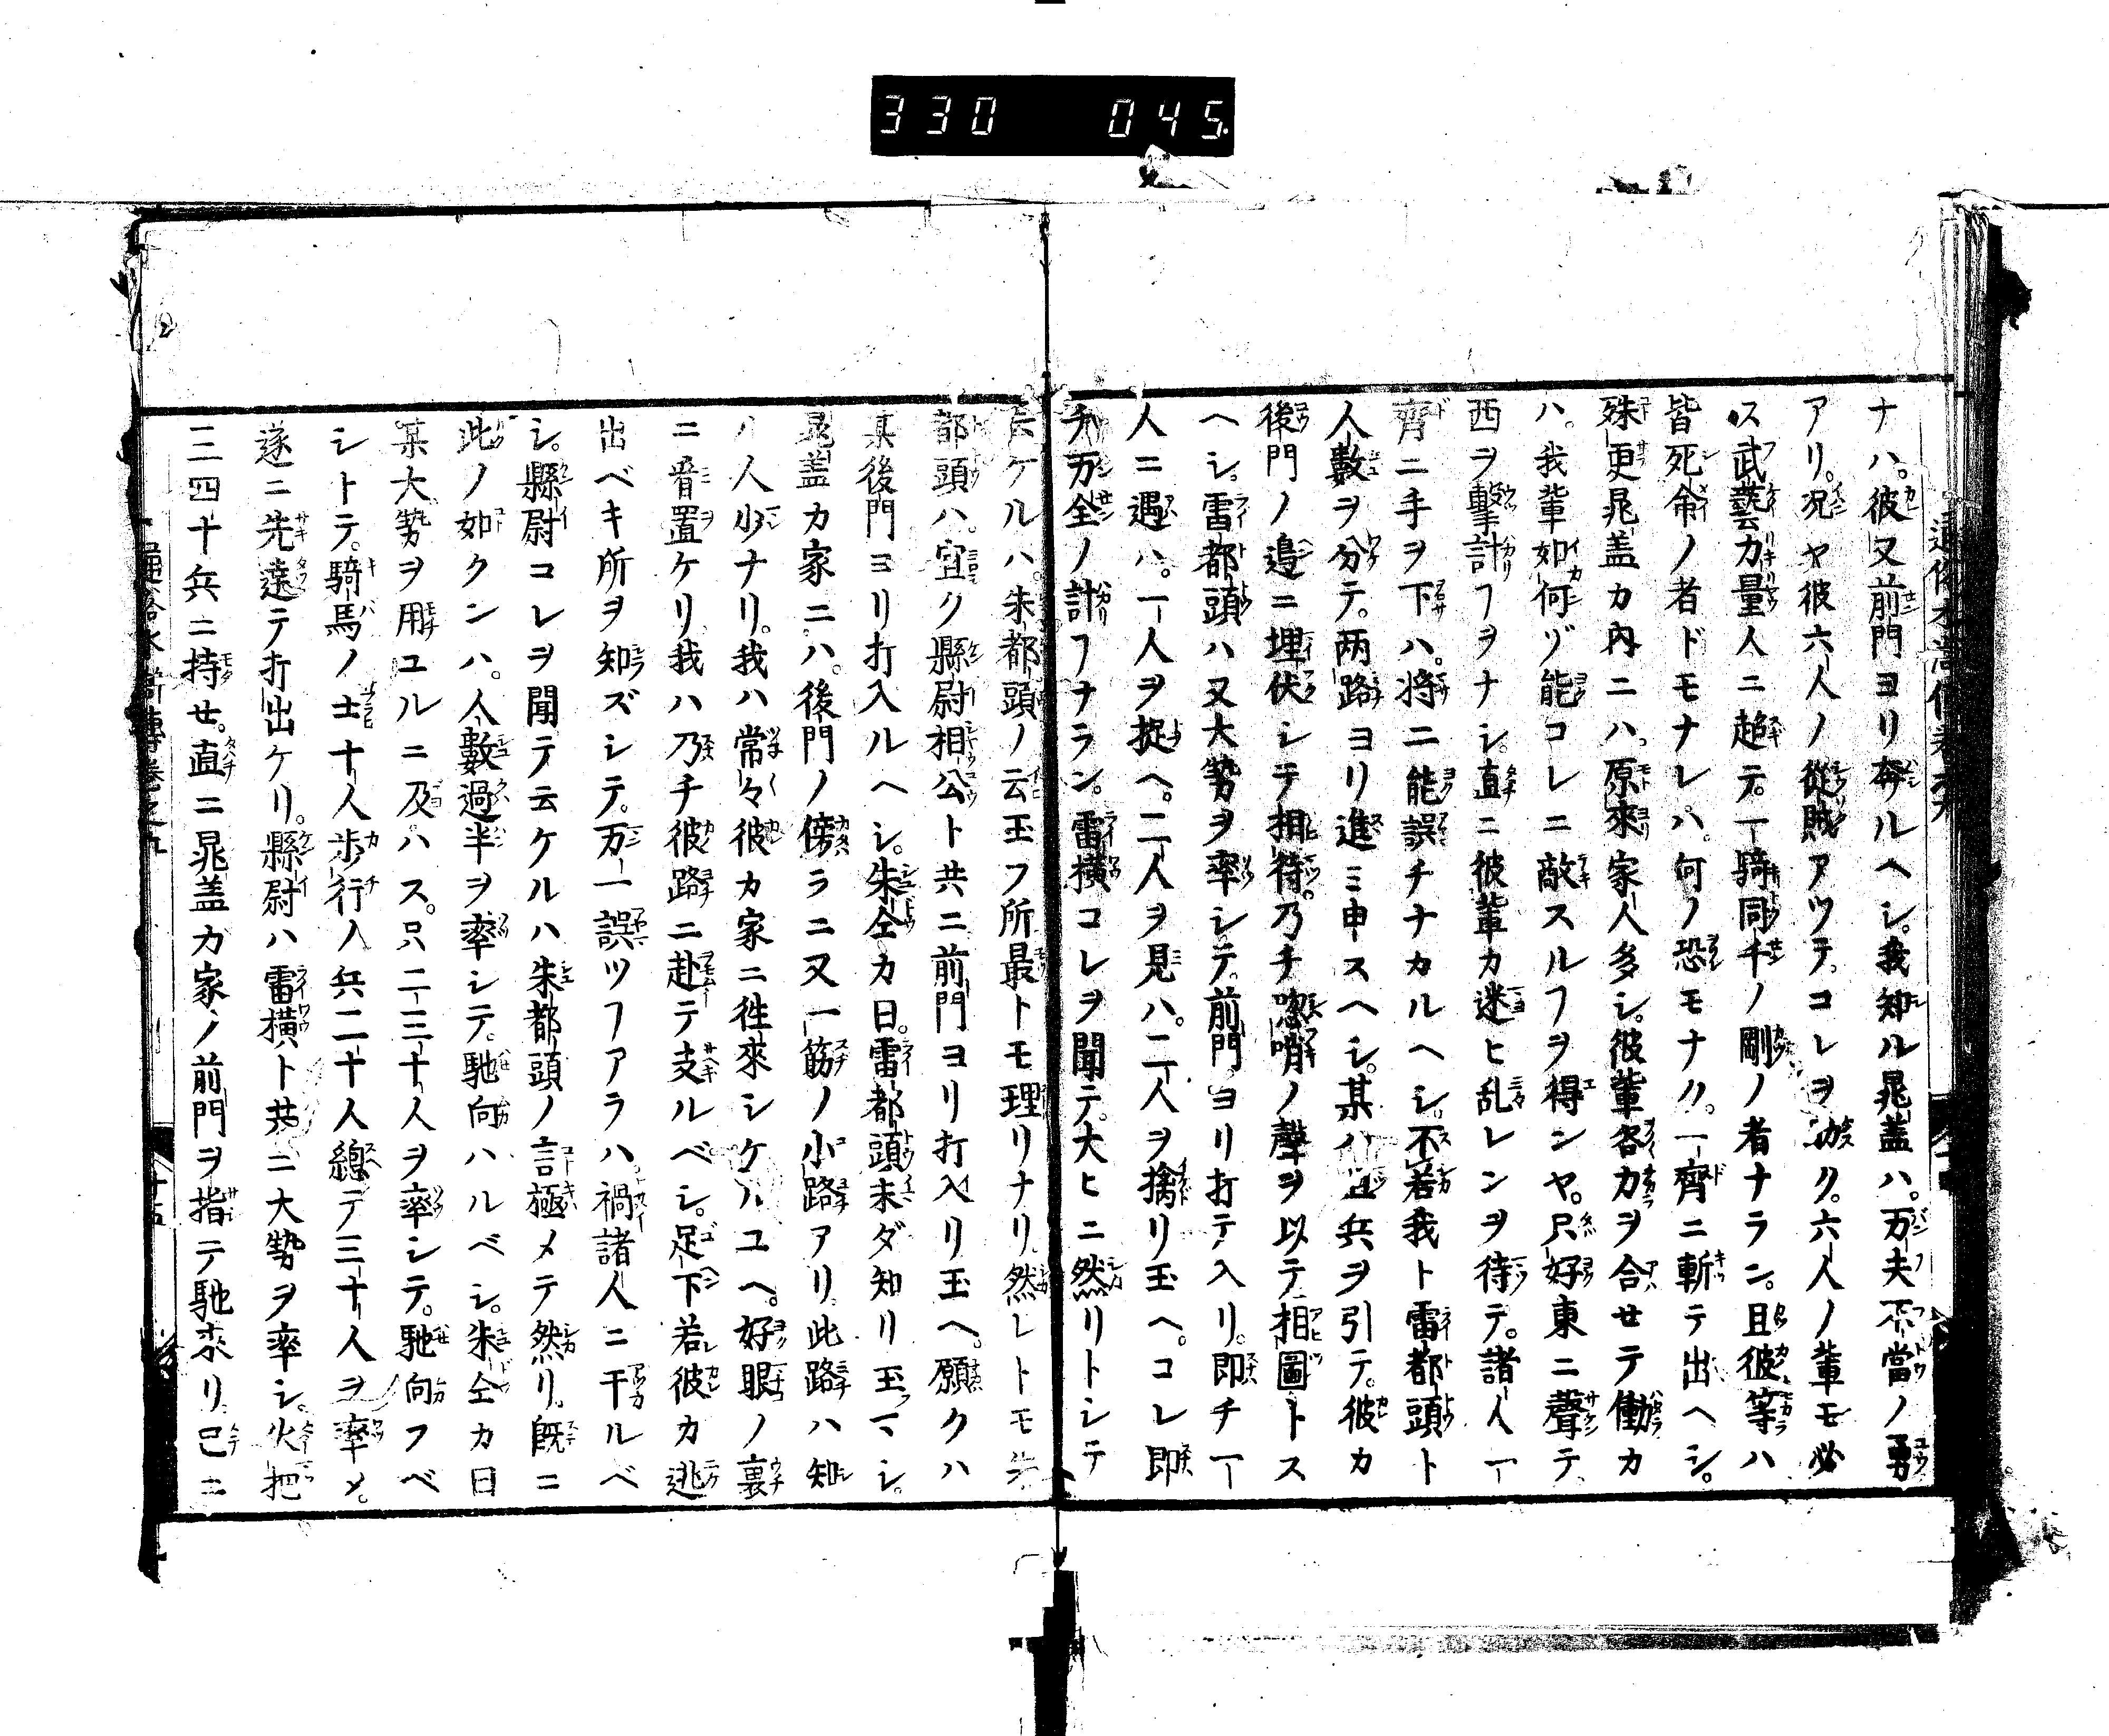 330 045
ナハ。彼又前門ヨリ奔ルヘシ。我知ル晁盖ハ。万夫不當ノ勇
アリ。况ヤ彼六人ノ從賊アツテ。コレヲ ク。六人ノ輩モ必
ス武藝力量人ニ超テ。一騎同千ノ剛ノ者ナラン。且彼等ハ
皆死命ノ者ドモナレハ。何ノ恐モナク。一齊ニ斬テ出ヘシ。
殊更晁盖カ内ニハ。原來家人多シ。彼輩各力ヲ合セテ働カ
ハ。我輩如何ゾ能コレニ敵スルヿヲ得ンヤ。只好東ニ聲テ
西ヲ擊計ヿヲナシ。直ニ彼輩カ迷ヒ乱レンヲ待テ。諸人一
齊ニ手ヲ下ハ。將ニ能誤チナカルヘシ。不若我ト雷都頭ト
人數ヲ分テ。两路ヨリ進ミ申スヘシ。某ハ 兵ヲ引テ。彼カ
後門ノ邉ニ埋伏シテ相待。乃チ唿哨ノ聲ヲ以テ相圖トス
ヘシ。雷都頭ハ又大勢ヲ率シテ。前門ヨリ打テ入リ。即チ一
人ニ遇ハ。一人ヲ掟ヘ。二人ヲ見ハ。二人ヲ擒リ玉ヘ。コレ即
チ万全ノ計ヿナラン。雷横コレヲ聞テ。大ヒニ然リトシテ
云ケルハ。朱都頭ノ云玉フ所最トモ理リナリ。然レトモ朱
都頭ハ。宜ク縣尉相公ト共ニ前門ヨリ打入リ玉ヘ。願クハ
某後門ヨリ打入ルヘシ。朱仝カ曰。雷都頭未ダ知リ玉フマシ。
晁盖カ家ニハ。後門ノ傍ラニ又一筋ノ小路アリ。此路ハ知
ル人少ナリ。我ハ常々彼カ家ニ徃來シケルユヘ。好眼ノ裏
ニ看置ケリ。我ハ乃チ彼路ニ赴テ支ルベシ。足下若彼カ逃
出ベキ所ヲ知ズシテ。万一誤ツヿアラハ。禍諸人ニ干ルベ
シ。縣尉コレヲ聞テ云ケルハ。朱都頭ノ言極メテ然リ。既ニ
此ノ如クンハ。人數過半ヲ率シテ。馳向ハルベシ。朱仝カ曰
某大勢ヲ用ユルニ及ハス。只二三十人ヲ率シテ。馳向フベ
シトテ。騎馬ノ士十人歩行ノ兵二十人總テ三十人ヲ率メ。
遂ニ先達テ打出ケリ。縣尉ハ雷横ト共ニ大勢ヲ率シ。火把
三四十兵ニ持せ。直ニ晁盖カ家ノ前門ヲ指テ馳來リ。已ニ